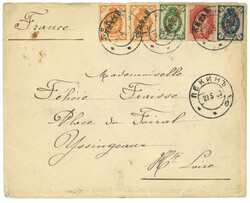 France
Mademoiselle
Félicie Fraisse
Place du Foiral
Yssingeaux
Hte Loire
ПЕКИНЪ